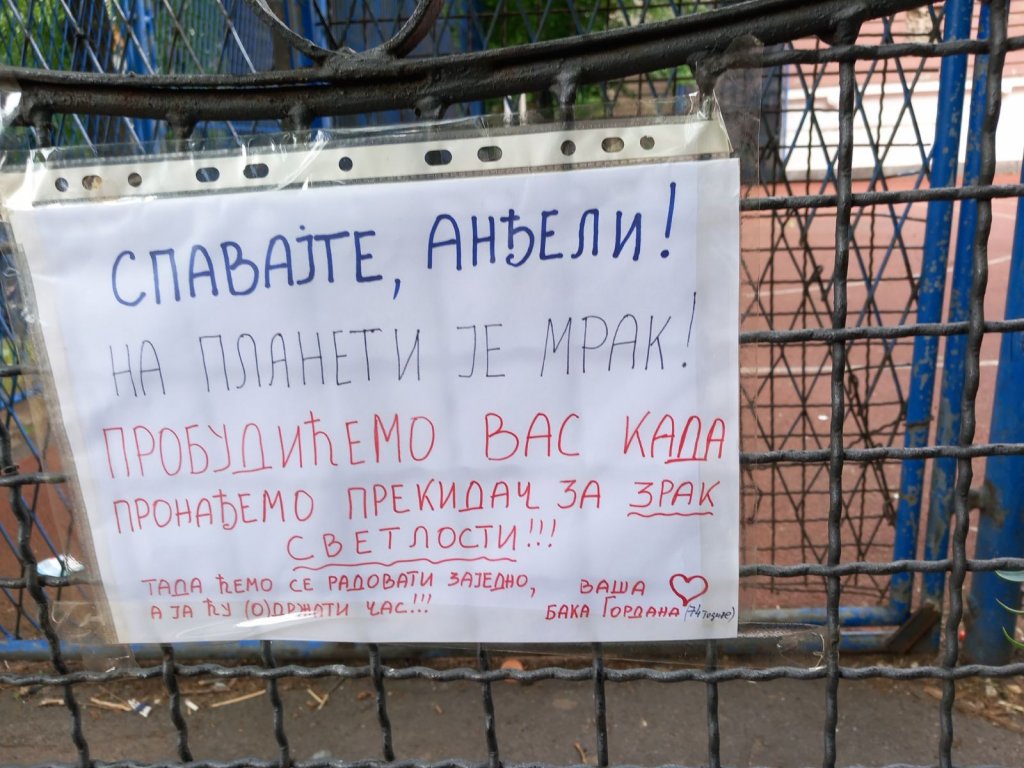 СПАВАЈТЕ, АНЂЕЛИ!
НА ПЛАНЕТИ ЈЕ МРАК!
ПРОБУДИЋЕМО ВАС КАДА
ПРОНАЂЕМО ПРЕКИДАЧ ЗА ЗРАК
СВЕТЛОСТИ!!!
ТАДА ЋЕМО СЕ РАДОВАТИ ЗАЈЕДНО,
А ЈА ЋУ (О)ДРЖАТИ ЧАС!!!
ВАША
БАКА ГОРДАНА (74 године)